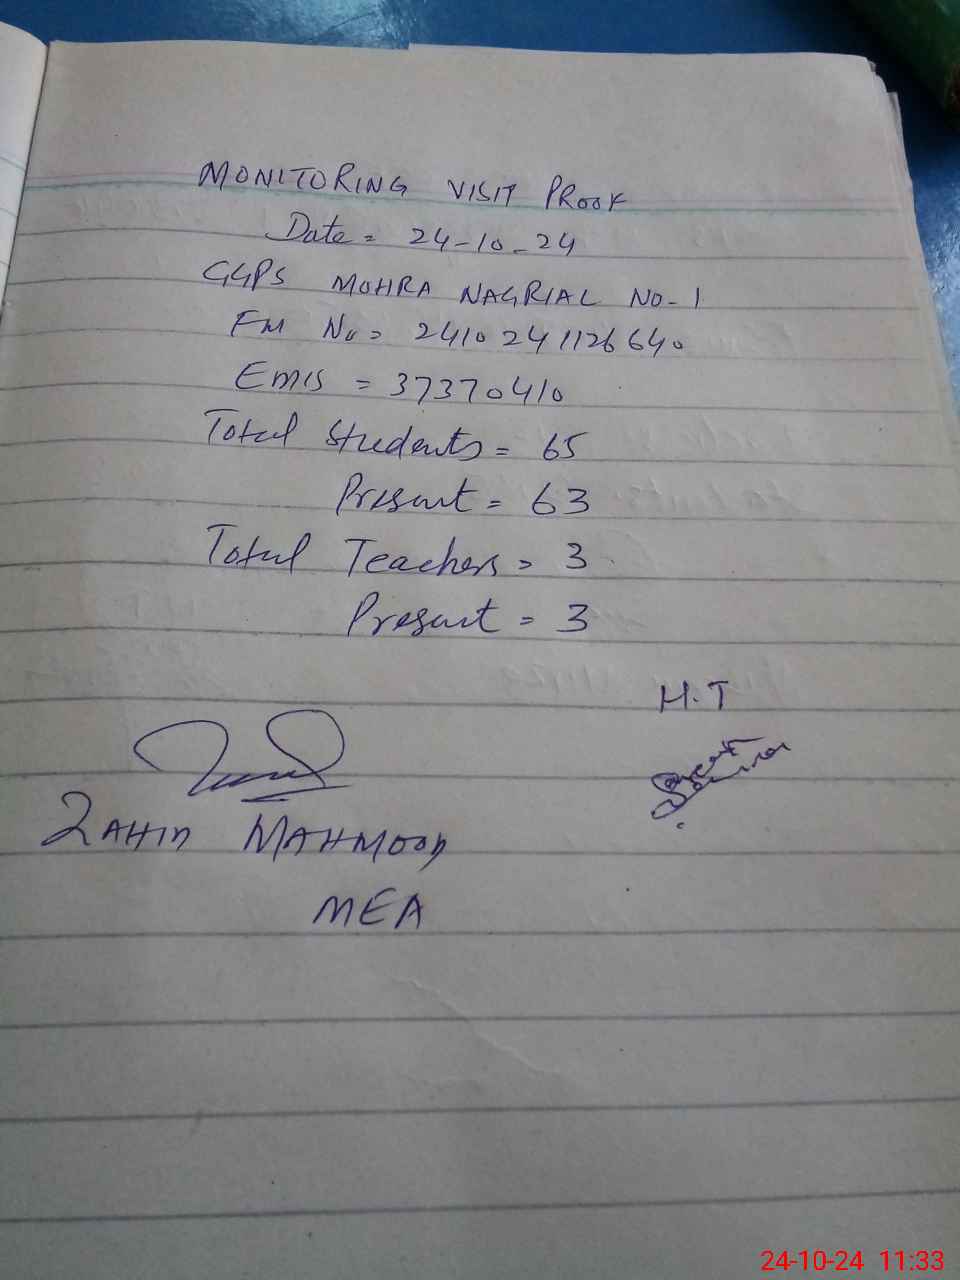 MONITORING VISIT PROOF
Date = 24-10-24
GGPS MOHRA NAGRIAL NO-1
FM No = 2410241126640
EMIS = 37370410
Total Students = 65
Present = 63
Total Teachers = 3
Present = 3
H.T
ZAHID MAHMOOD
MEA
24-10-24 11:33